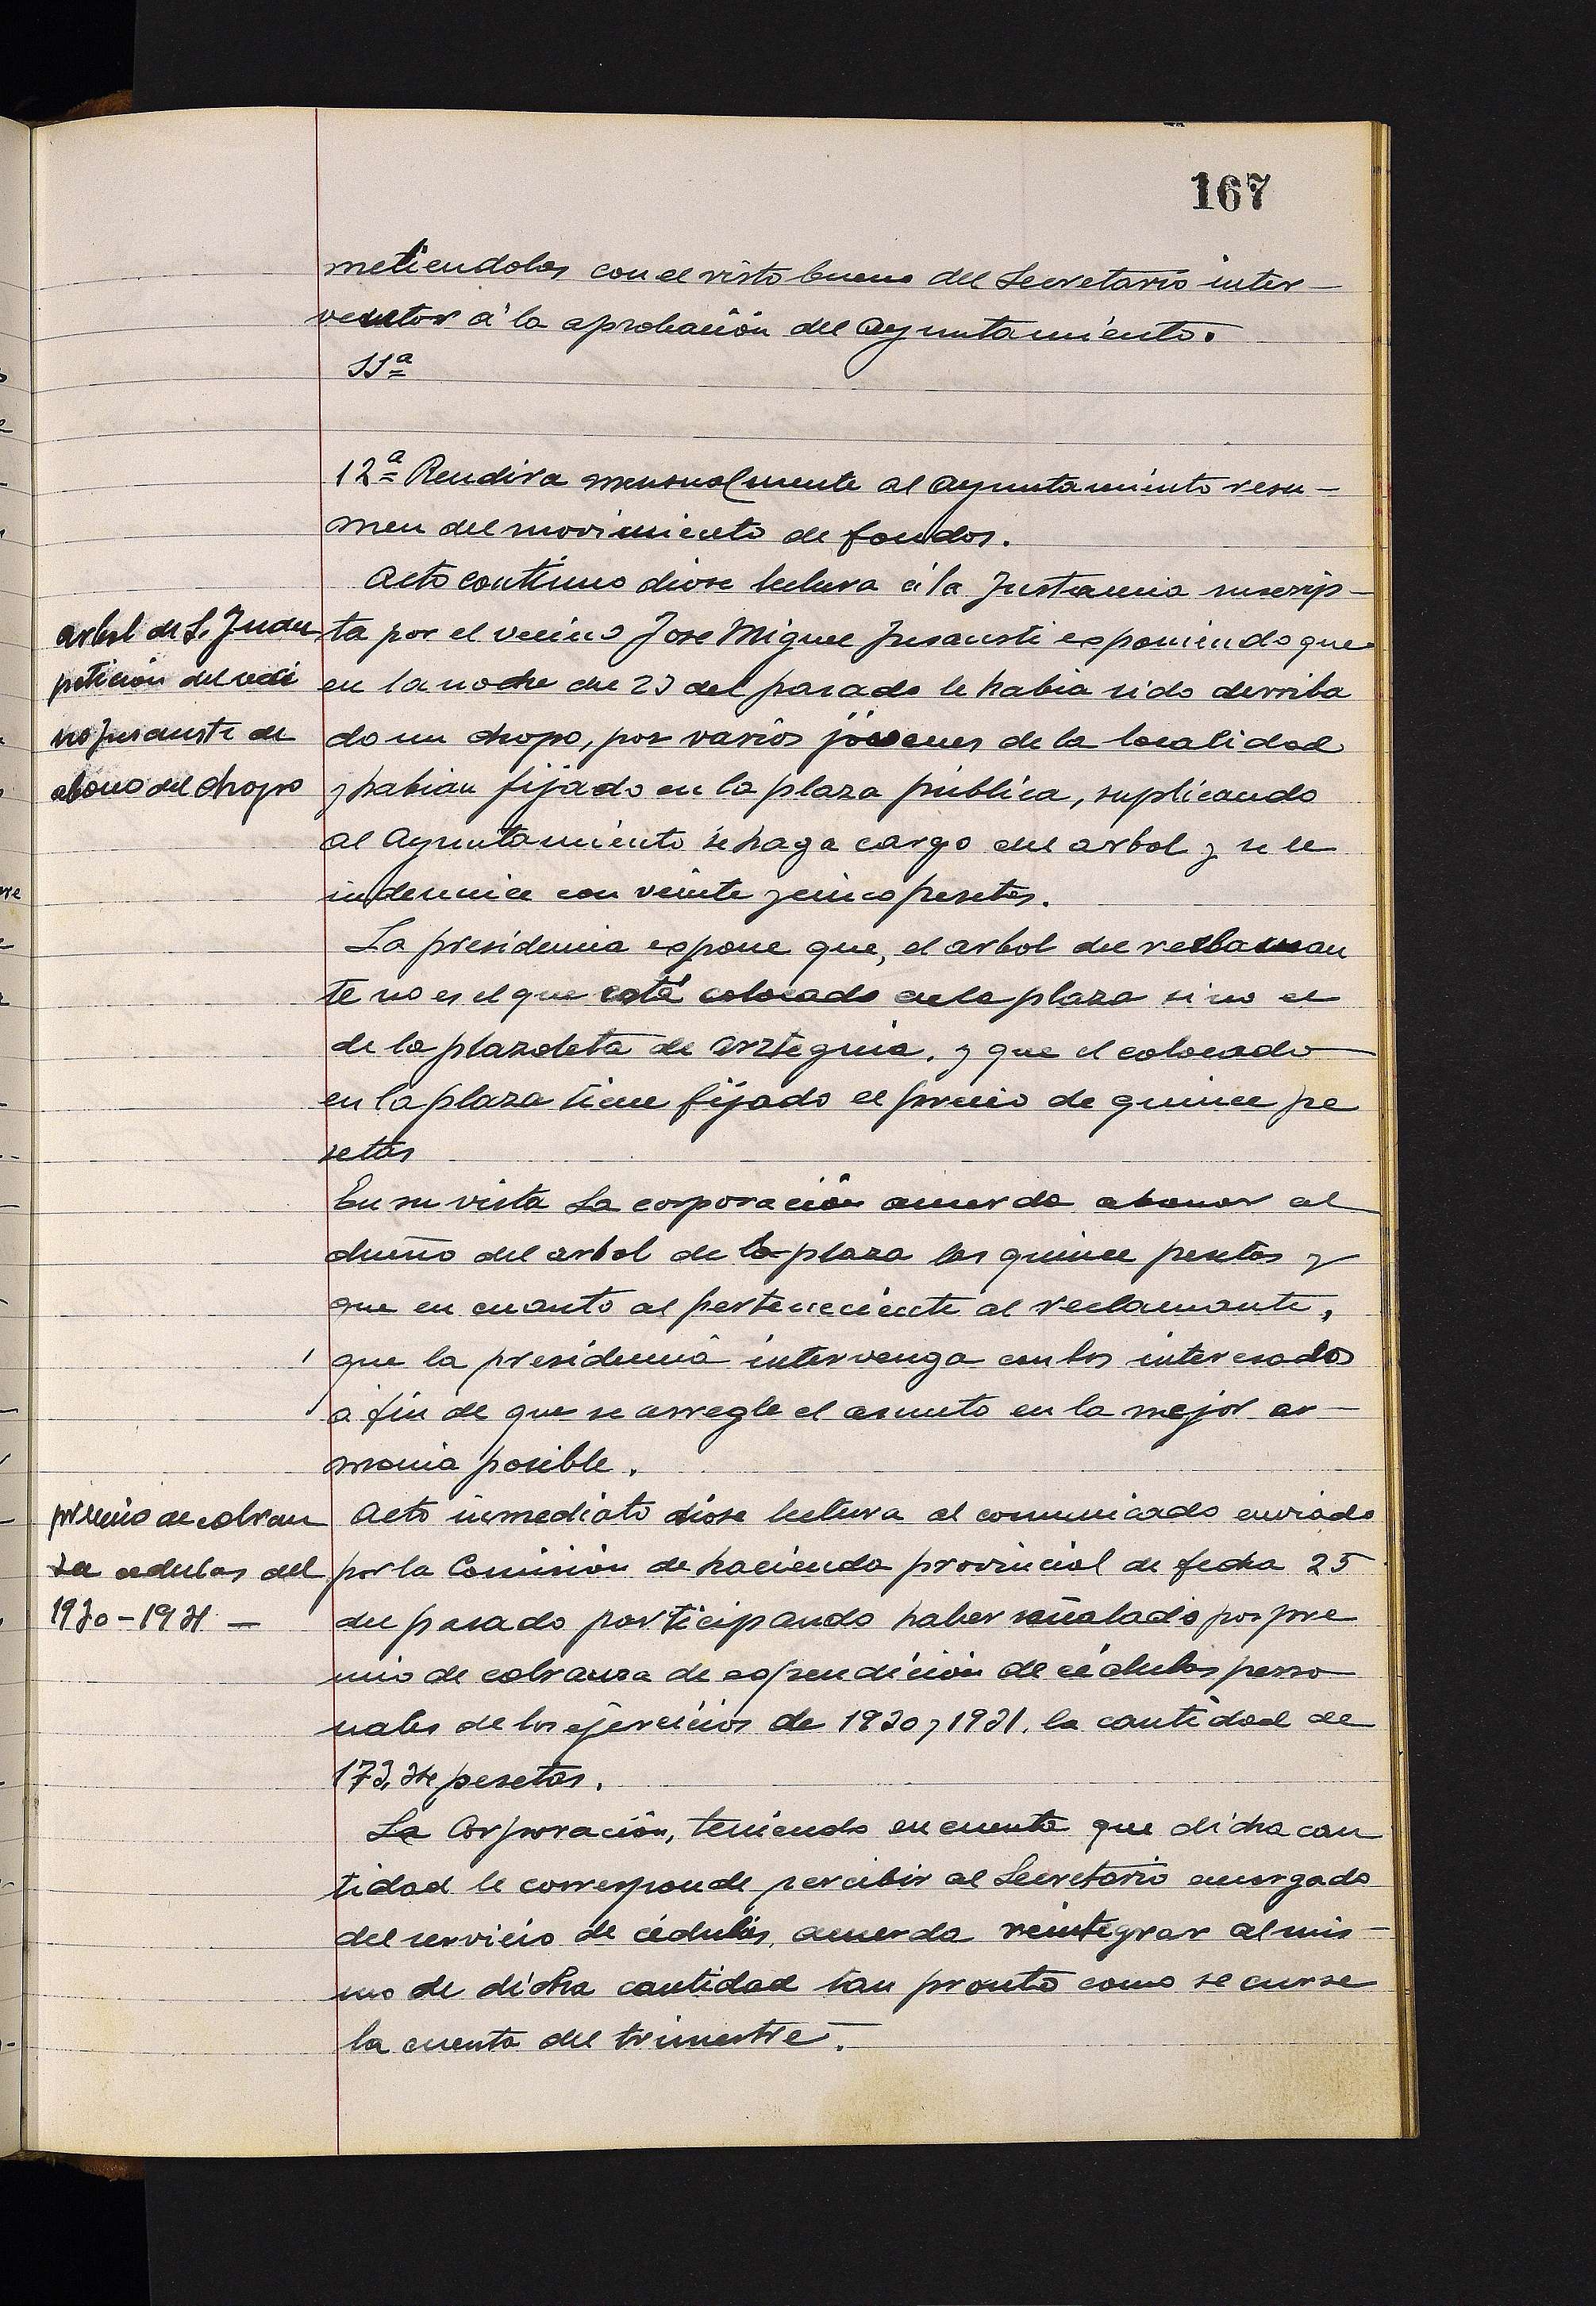 167
metiendolas con el visto bueno del Secretario inter-
ventor á la aprobación del Ayuntamiento.
11ª
12ª Rendira mensualmente al Ayuntamiento resu-
men del movimiento de fondos.
Acto continuo diose lectura á la Instancia suscrip-
arbol de S. Juan
petición del veci
no Insausti de
abono del chopo
ta por el vecino Jose Miguel Insausti esponiendo que
en la noche del 23 del pasado le habia sido derriba
do un chopo, por varios jóvenes de la localidad
y habian fijado en la plaza pública, suplicando
al Ayuntamiento se haga cargo del arbol y se le
indemnice con veinte y cinco pesetas.
La presidencia espone que, el arbol del reclaman
te no es el que está colocado en la plaza sino el
de la plazoleta de Arzteguia. y que el colocado
en la plaza tiene fijado el precio de quince pe
setas
En su vista La corporación acuerda abonar al
dueño del arbol de la plaza las quince pesetas y
que en cuanto al perteneciente al reclamante,
que la presidencia intervenga con los interesados
á fin de que se arregle el asunto en la mejor ar-
monia posible.
premio de cobran
za cedulas del
1930-1931 —
Acto inmediato diose lectura al comunicado enviado
por la Comisión de hacienda provincial de fecha 25
del pasado participando haber señalado por pre
mio de cobranza de espendición de cédulas perso
nales de los ejercicios de 1930 y 1931, la cantidad de
173,34 pesetas.
La Corporación, teniendo en cuenta que dicha can
tidad le corresponde percibir al Secretario encargado
del servicio de cédulas, acuerda reintegrar al mis-
mo de dicha cantidad tan pronto como se curse
la cuenta del trimestre.